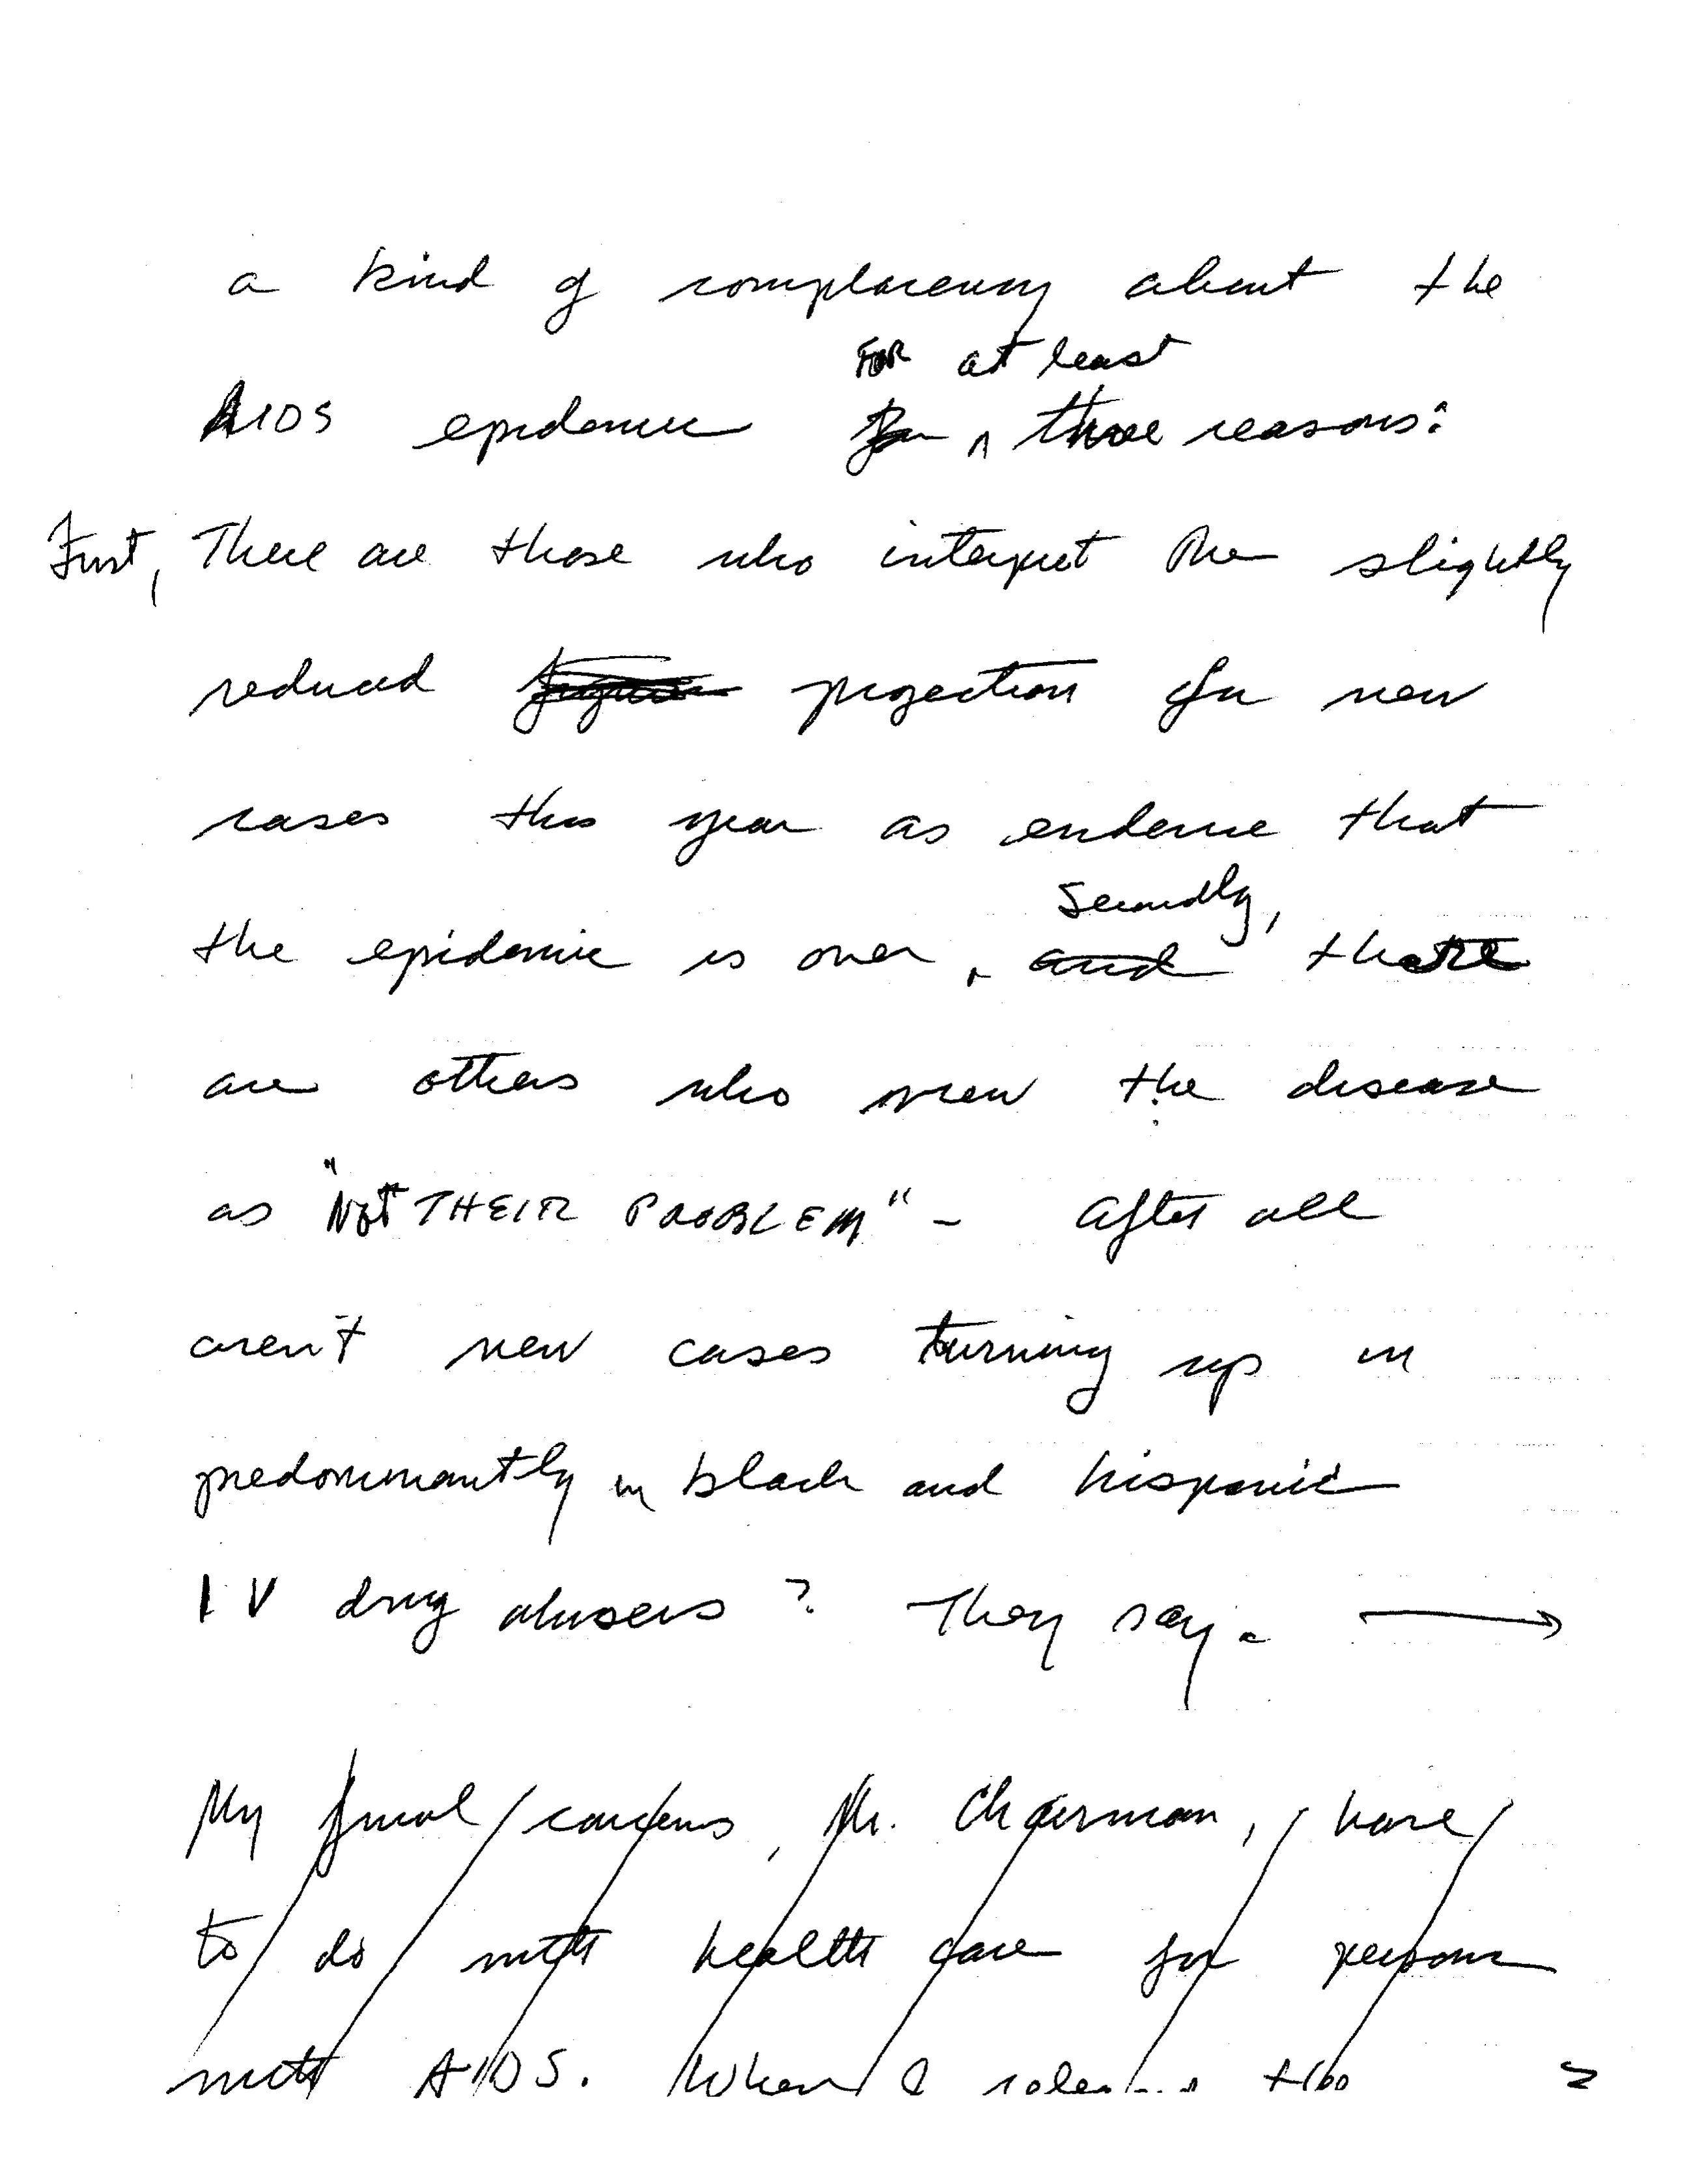 a kind of complacency about the
FOR at least
AIDS epidemic for ^ three reasons:
First, There are those who interpret the slightly
reduced projection for new
cases this year as evidence that
Secondly,
the epidemic is over. and there
are others who view the disease
as "NOT THEIR PROBLEM" - After all
aren't new cases turning up in
predominantly in black and hispanic
IV drug abusers? They say. →
My final concerns, Mr. Chairman, have
to do with health care for persons
with AIDS. When I the